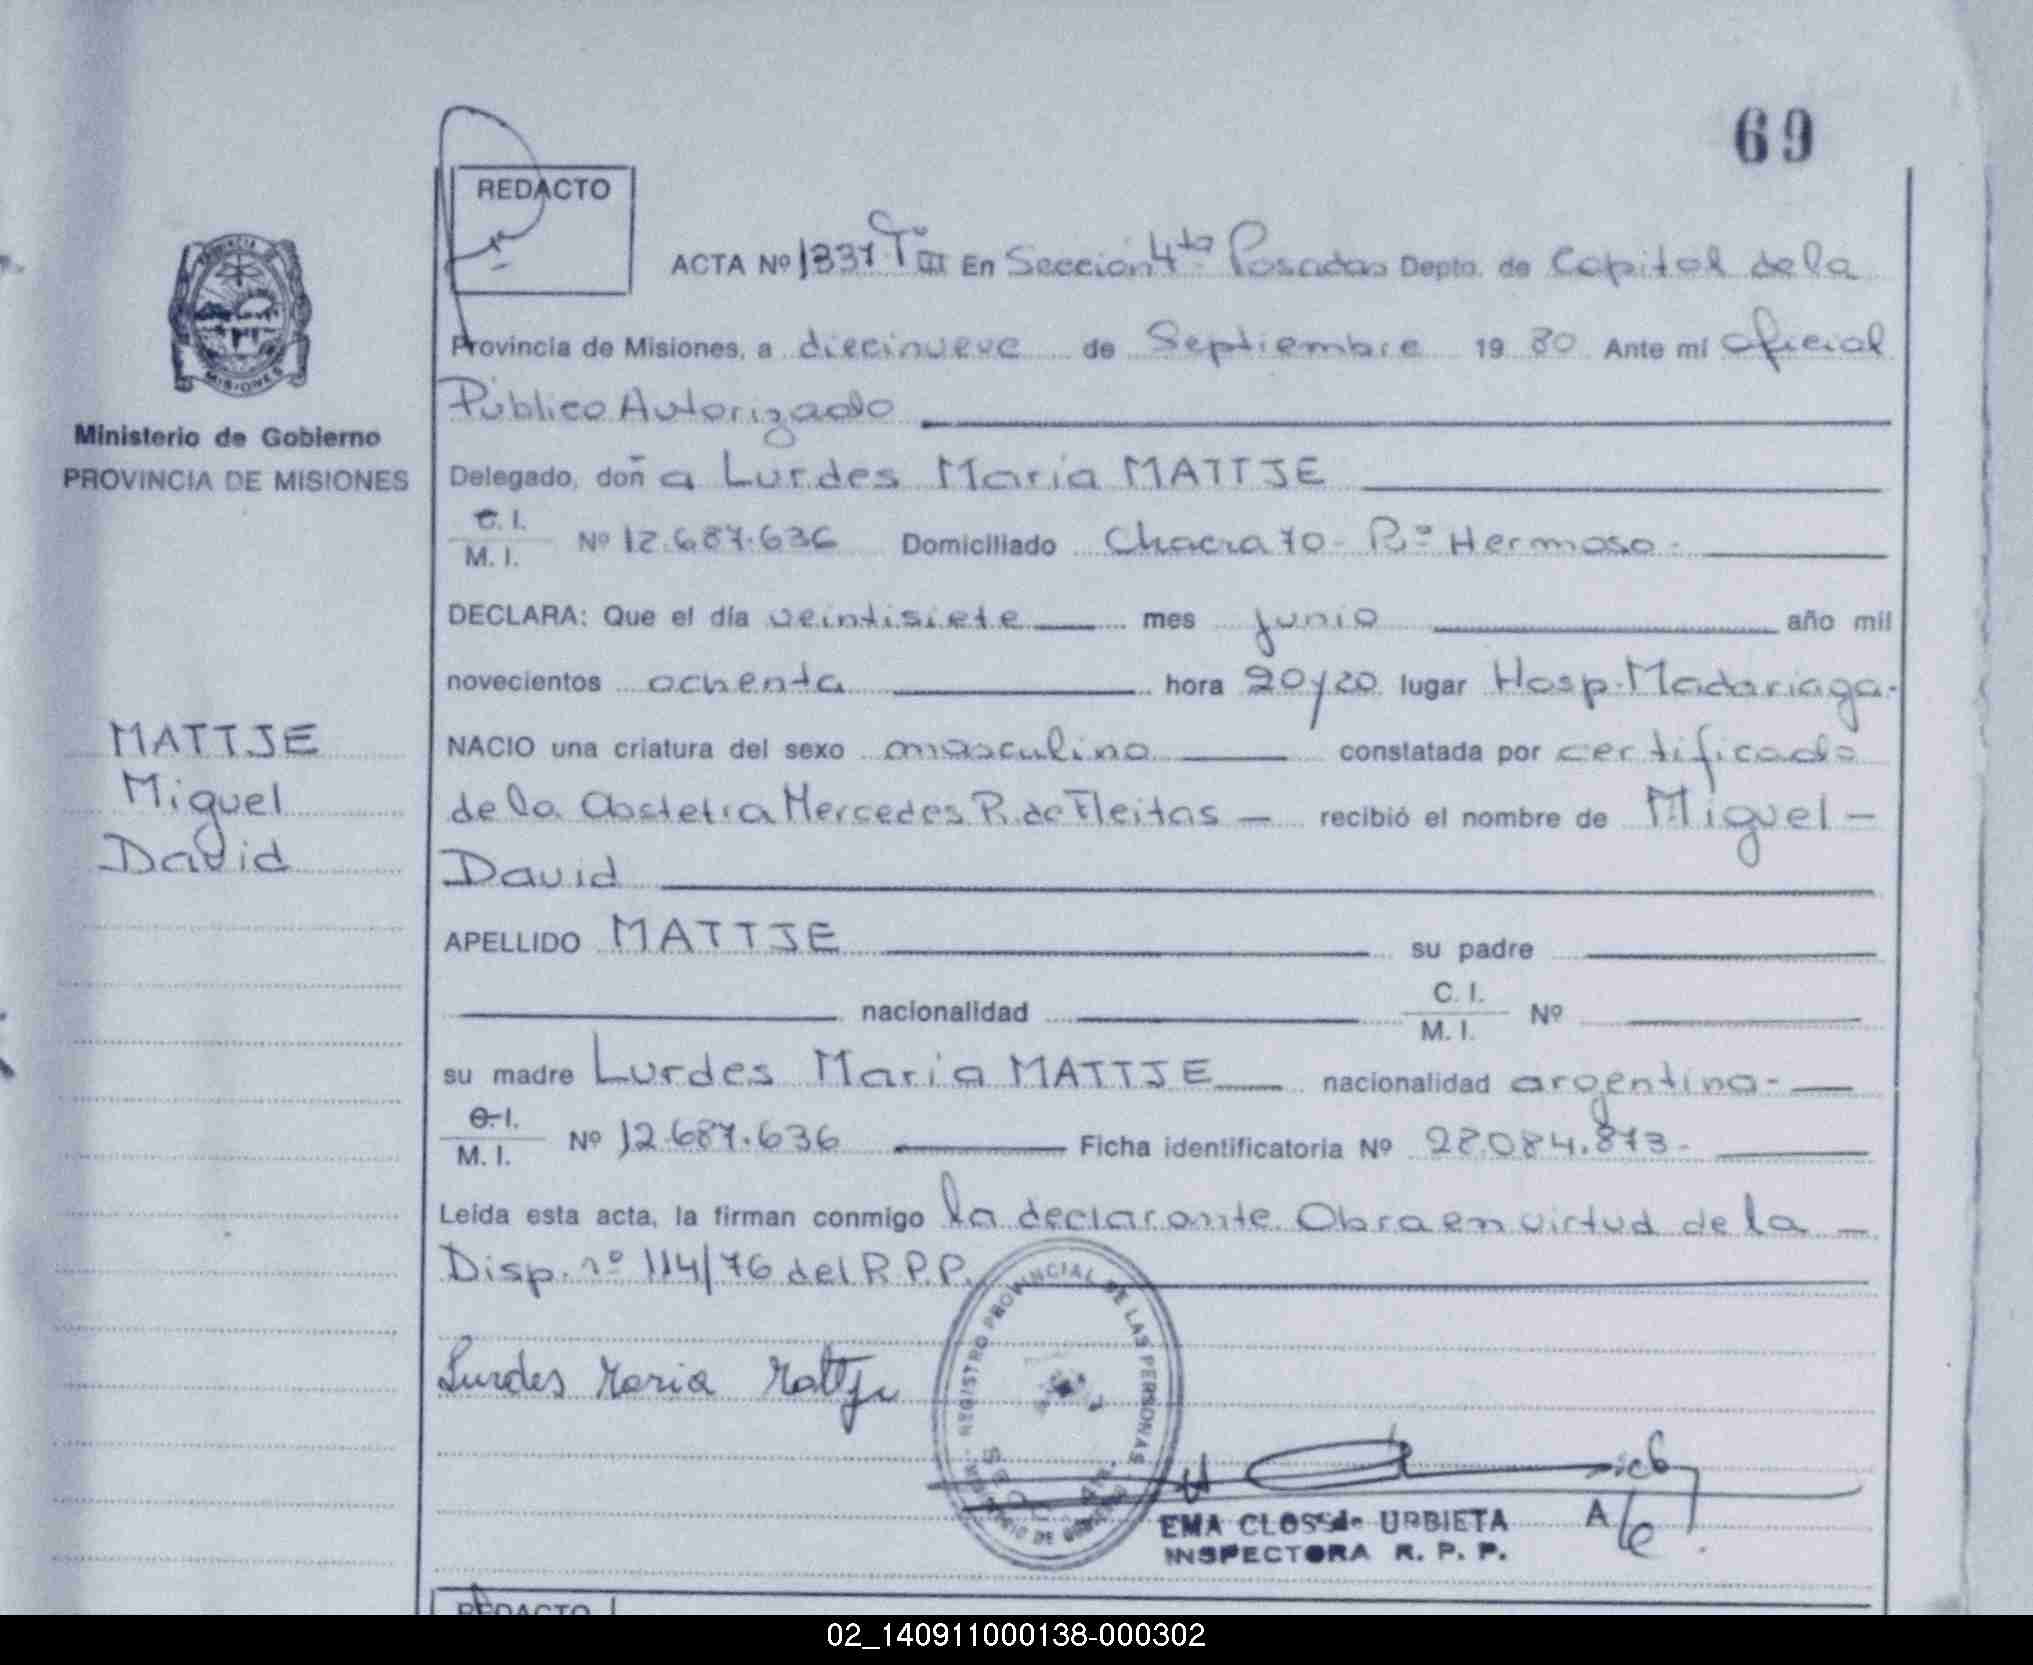 69
REDACTO
ACTA Nº 1337 Tº III En Sección 4ta Posadas Depto. de Capital de la
Provincia de Misiones, a diecinueve de Septiembre 19 80 Ante mi Oficial
Público Autorizado
Delegado, doña Lurdes María MATTJE
C. I.
M. I.
Nº 12.687.636 Domiciliado Chacra 70 - Rº Hermoso -
DECLARA: Que el día veintisiete mes junio año mil
novecientos ochenta hora 20y20 lugar Hosp. Madariaga.
NACIO una criatura del sexo masculino constatada por certificado
de la Obstetra Mercedes R. de Fleitas — recibió el nombre de Miguel -
David
APELLIDO MATTJE su padre
nacionalidad C. I.
M. I. Nº
su madre Lurdes María MATTJE nacionalidad argentina -
C. I.
M. I.
Nº 12.687.636 Ficha identificatoria Nº 28.084.873 -
Leída esta acta, la firman conmigo la declarante Obra en virtud de la -
Disp. nº 114/76 del R.P.P.
Lurdes Maria Mattje
REGISTRO PROVINCIAL DE LAS PERSONAS
MINISTERIO DE GOBIERNO
EMA CLOSS de URBIETA
INSPECTORA R. P. P.
REDACTO
PROVINCIA DE
MISIONES
Ministerio de Gobierno
PROVINCIA DE MISIONES
MATTJE
Miguel
David
02_140911000138-000302